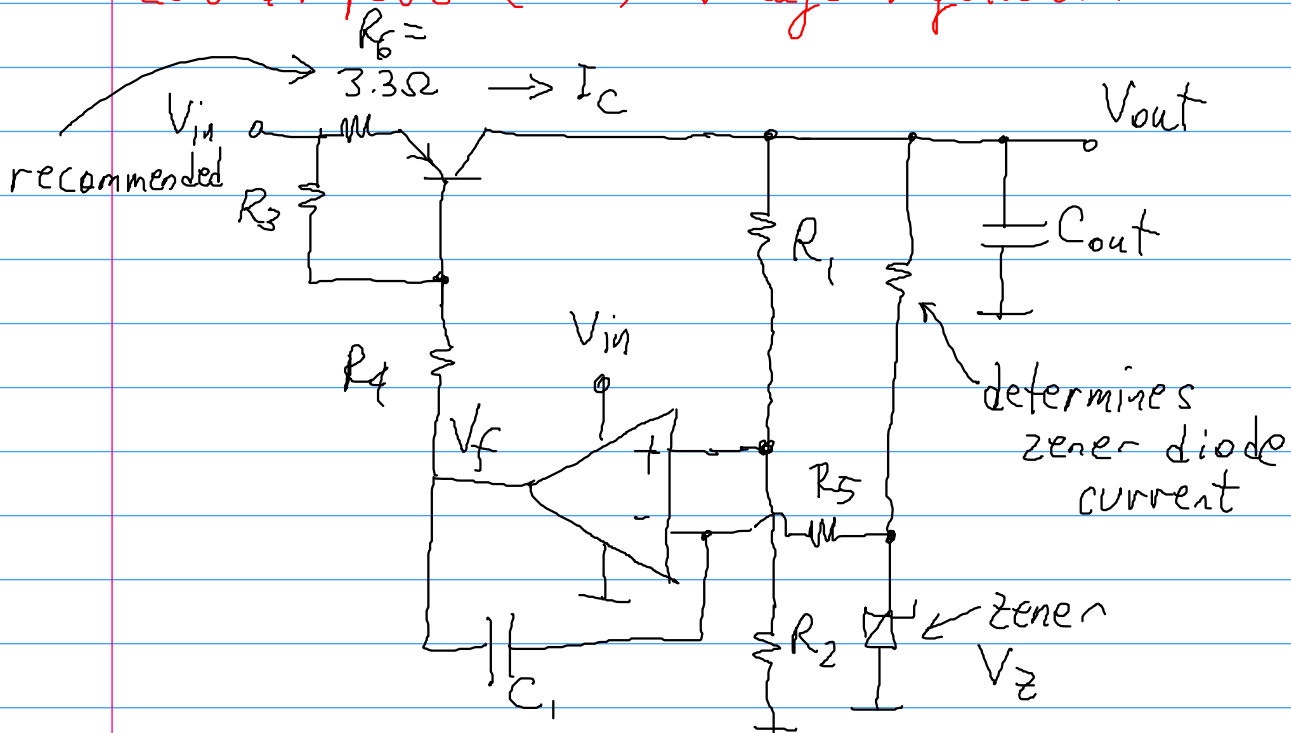 R6 =
3.3Ω → IC
Vin
Vout
recommended
R3
R1
Cout
Vin
R4
determines
zener diode
current
Vf
+
R5
-
zener
VZ
R2
C1